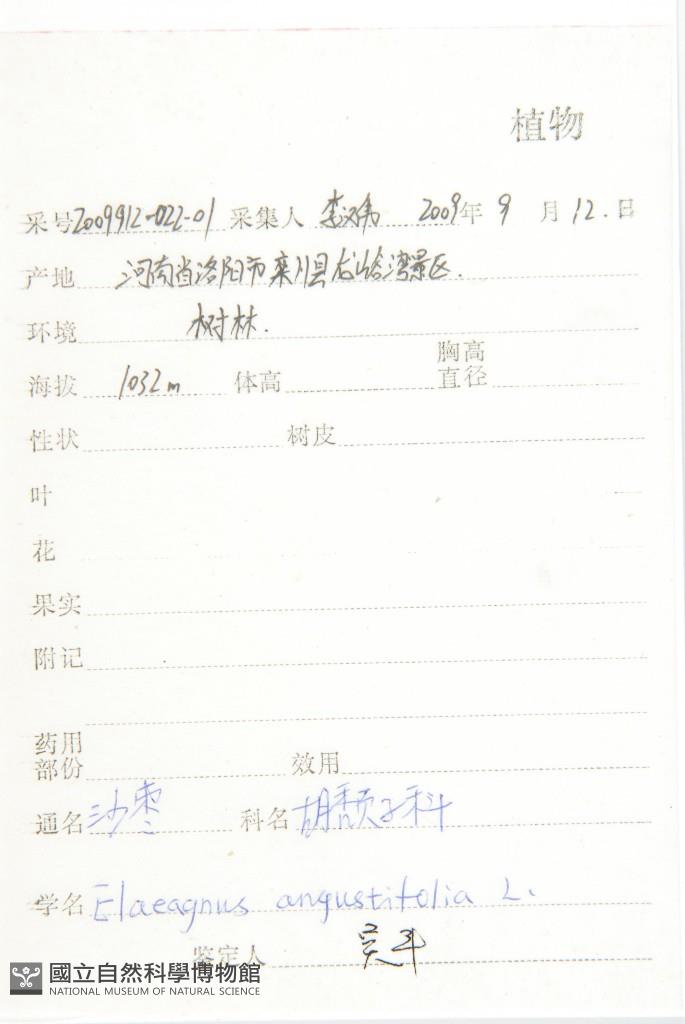 植物
采号 2009912-022-01 采集人 李汉伟 2009年 9 月 12. 日
产地 河南省洛阳市栾川县龙峪湾景区.
环境 树林.
海拔 1032m 体高 胸高直径
性状 树皮
叶
花
果实
附记
药用部份 效用
通名 沙枣 科名 胡颓子科
学名 Elaeagnus angustifolia L.
鉴定人
國立自然科學博物館
NATIONAL MUSEUM OF NATURAL SCIENCE